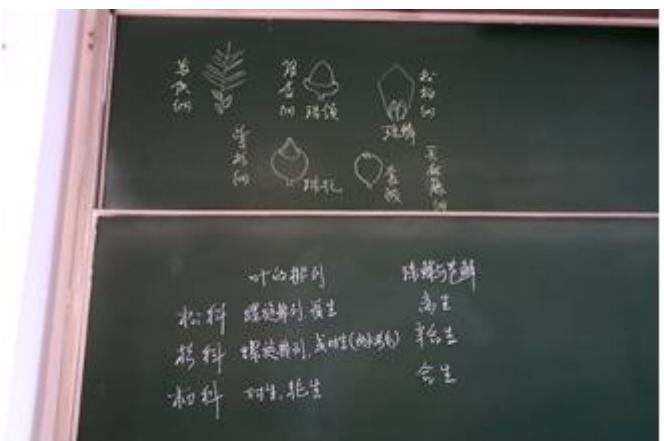 苏铁纲
银杏纲 珠领
松柏纲
珠鳞
红豆杉纲
珠托
套被
买麻藤纲
叶的排列 珠鳞与苞鳞
松科 螺旋排列,簇生 离生
杉科 螺旋排列,或对生(水杉) 半合生
柏科 对生,轮生 合生